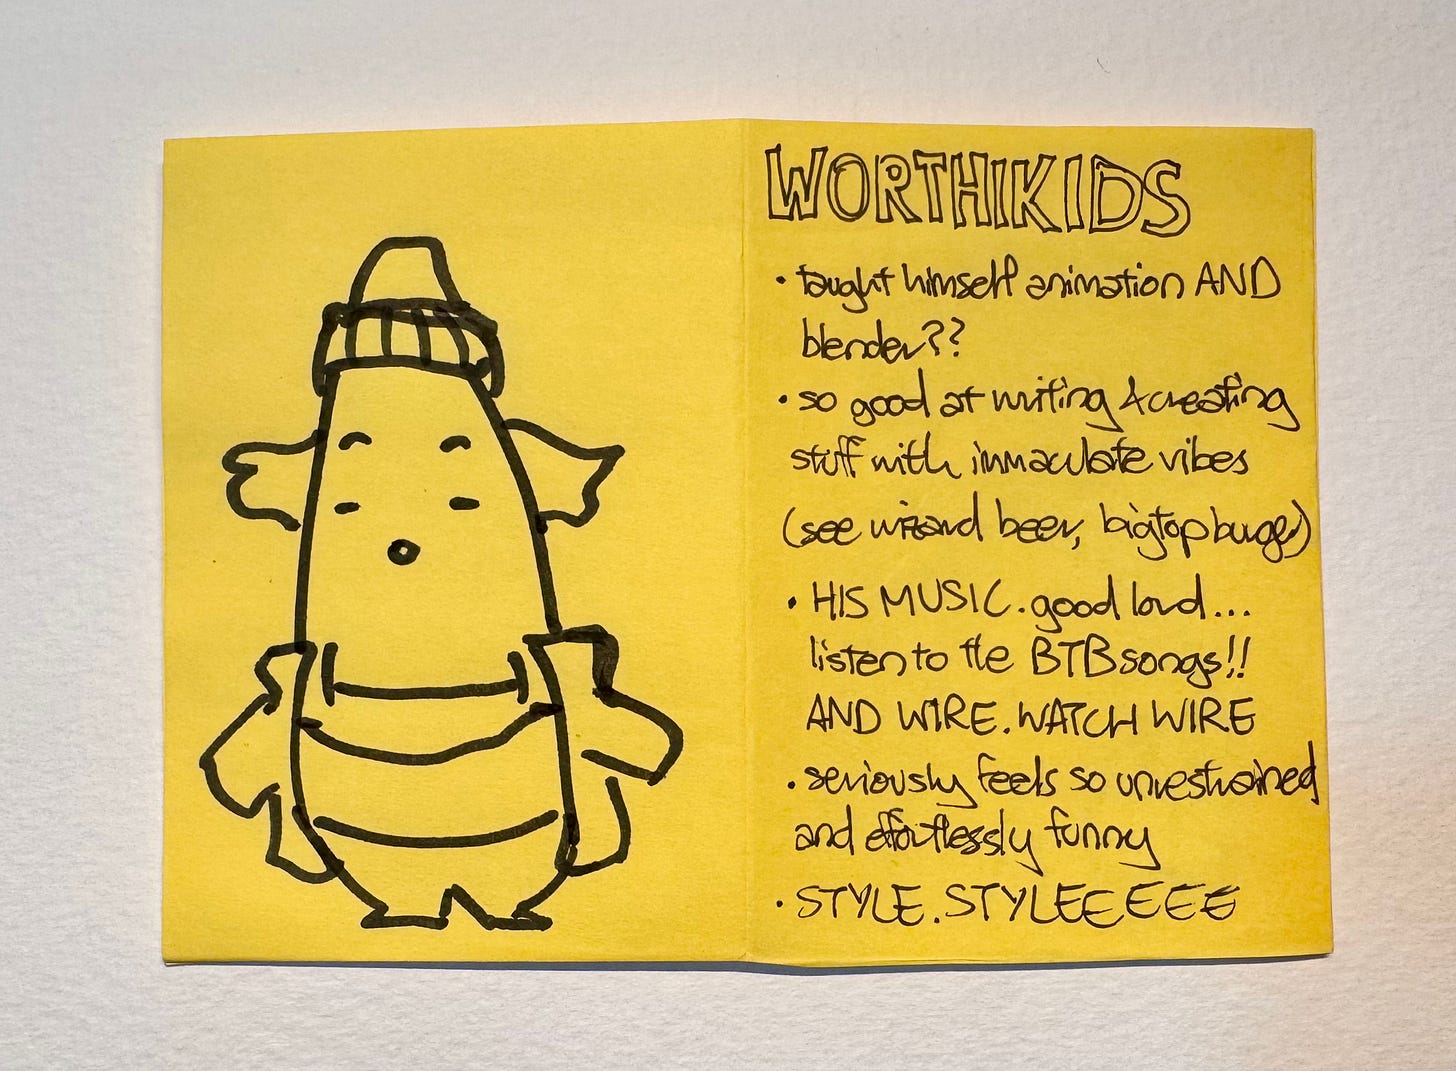 WORTHIKIDS
• taught himself animation AND
blender??
• so good at writing & creating
stuff with immaculate vibes
(see wizard beer, bigtop burger)
• HIS MUSIC. good lord...
listen to the BTB songs!!
AND WIRE. WATCH WIRE
• seriously feels so unrestrained
and effortlessly funny
• STYLE. STYLEEEEEE